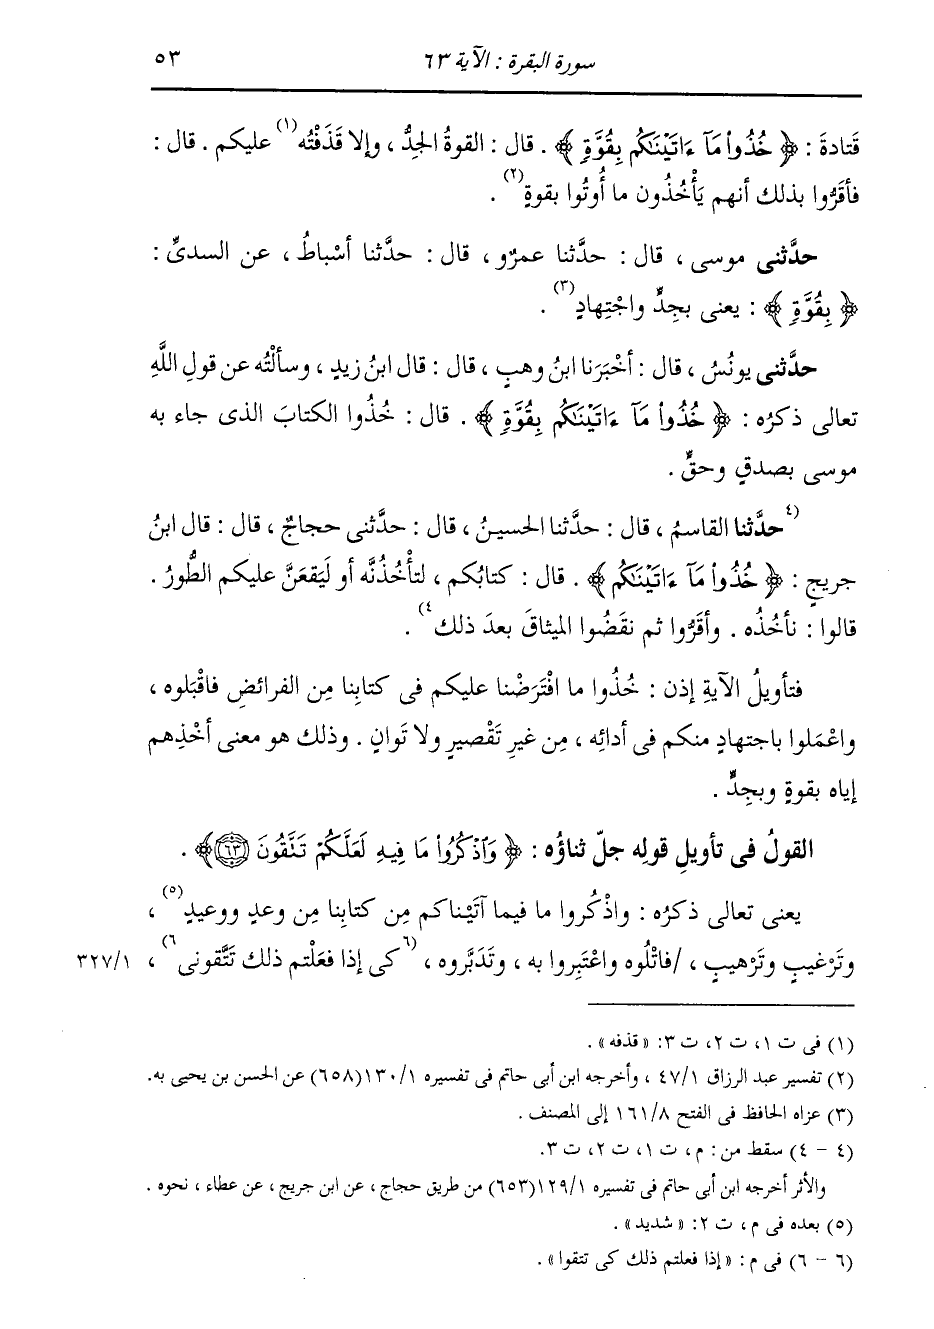 سورة البقرة : الآية ٦٣ ٥٣
قَتادةَ : ﴿ خُذُوا۟ مَآ ءَاتَيْنَٰكُم بِقُوَّةٍ ﴾ . قال : القوةُ الجِدُّ ، وإلا قَذَفْتُه(١) عليكم . قال :
فأقَرُّوا بذلك أنهم يَأْخُذُون ما أُوتُوا بقوةٍ(٢) .
حدَّثنى موسى ، قال : حدَّثنا عمرٌو ، قال : حدَّثنا أسْباطُ ، عن السدىِّ :
﴿ بِقُوَّةٍ ﴾ : يعنى بجِدٍّ واجْتِهادٍ(٣) .
حدَّثنى يونُسُ ، قال : أخْبَرَنا ابنُ وهبٍ ، قال : قال ابنُ زيدٍ ، وسألْتُه عن قولِ اللَّهِ
تعالى ذكرُه : ﴿ خُذُوا۟ مَآ ءَاتَيْنَٰكُم بِقُوَّةٍ ﴾ . قال : خُذُوا الكتابَ الذى جاء به
موسى بصدقٍ وحقٍّ .
(٤حدَّثنا القاسمُ ، قال : حدَّثنا الحسينُ ، قال : حدَّثنى حجاجٌ ، قال : قال ابنُ
جريجٍ : ﴿ خُذُوا۟ مَآ ءَاتَيْنَٰكُم ﴾ . قال : كتابُكم ، لتأْخُذُنَّه أو لَيَقعَنَّ عليكم الطُّورُ .
قالوا : نأخُذُه . وأقَرُّوا ثم نقَضُوا الميثاقَ بعدَ ذلك٤) .
فتأويلُ الآيةِ إذن : خُذُوا ما افْتَرَضْنا عليكم فى كتابِنا مِن الفرائضِ فاقْبَلوه ،
واعْمَلوا باجتهادٍ منكم فى أدائِه ، مِن غيرِ تَقْصيرٍ ولا تَوانٍ . وذلك هو معنى أخْذِهم
إياه بقوةٍ وبجِدٍّ .
القولُ فى تأويلِ قولِه جلّ ثناؤُه : ﴿ وَٱذْكُرُوا۟ مَا فِيهِ لَعَلَّكُمْ تَتَّقُونَ ٦٣ ﴾ .
يعنى تعالى ذكرُه : واذْكُروا ما فيما آتَيْناكم مِن كتابِنا مِن وعدٍ ووعيدٍ(٥) ،
وتَرْغيبٍ وتَرْهيبٍ ، /فاتْلُوه واعْتَبِروا به ، وتَدَبَّروه ، (٦كى إذا فعَلْتم ذلك تَتَّقونى٦) ، ٣٢٧/١
(١) فى ت ١، ت ٢، ت ٣: «قذفه» .
(٢) تفسير عبد الرزاق ٤٧/١ ، وأخرجه ابن أبى حاتم فى تفسيره ١٣٠/١(٦٥٨) عن الحسن بن يحيى به.
(٣) عزاه الحافظ فى الفتح ١٦١/٨ إلى المصنف .
(٤ - ٤) سقط من : م، ت ١، ت ٢، ت ٣.
والأثر أخرجه ابن أبى حاتم فى تفسيره ١٢٩/١(٦٥٣) من طريق حجاج ، عن ابن جريج ، عن عطاء ، نحوه .
(٥) بعده فى م ، ت ٢: «شديد» .
(٦ - ٦) فى م : «إذا فعلتم ذلك كى تتقوا» .